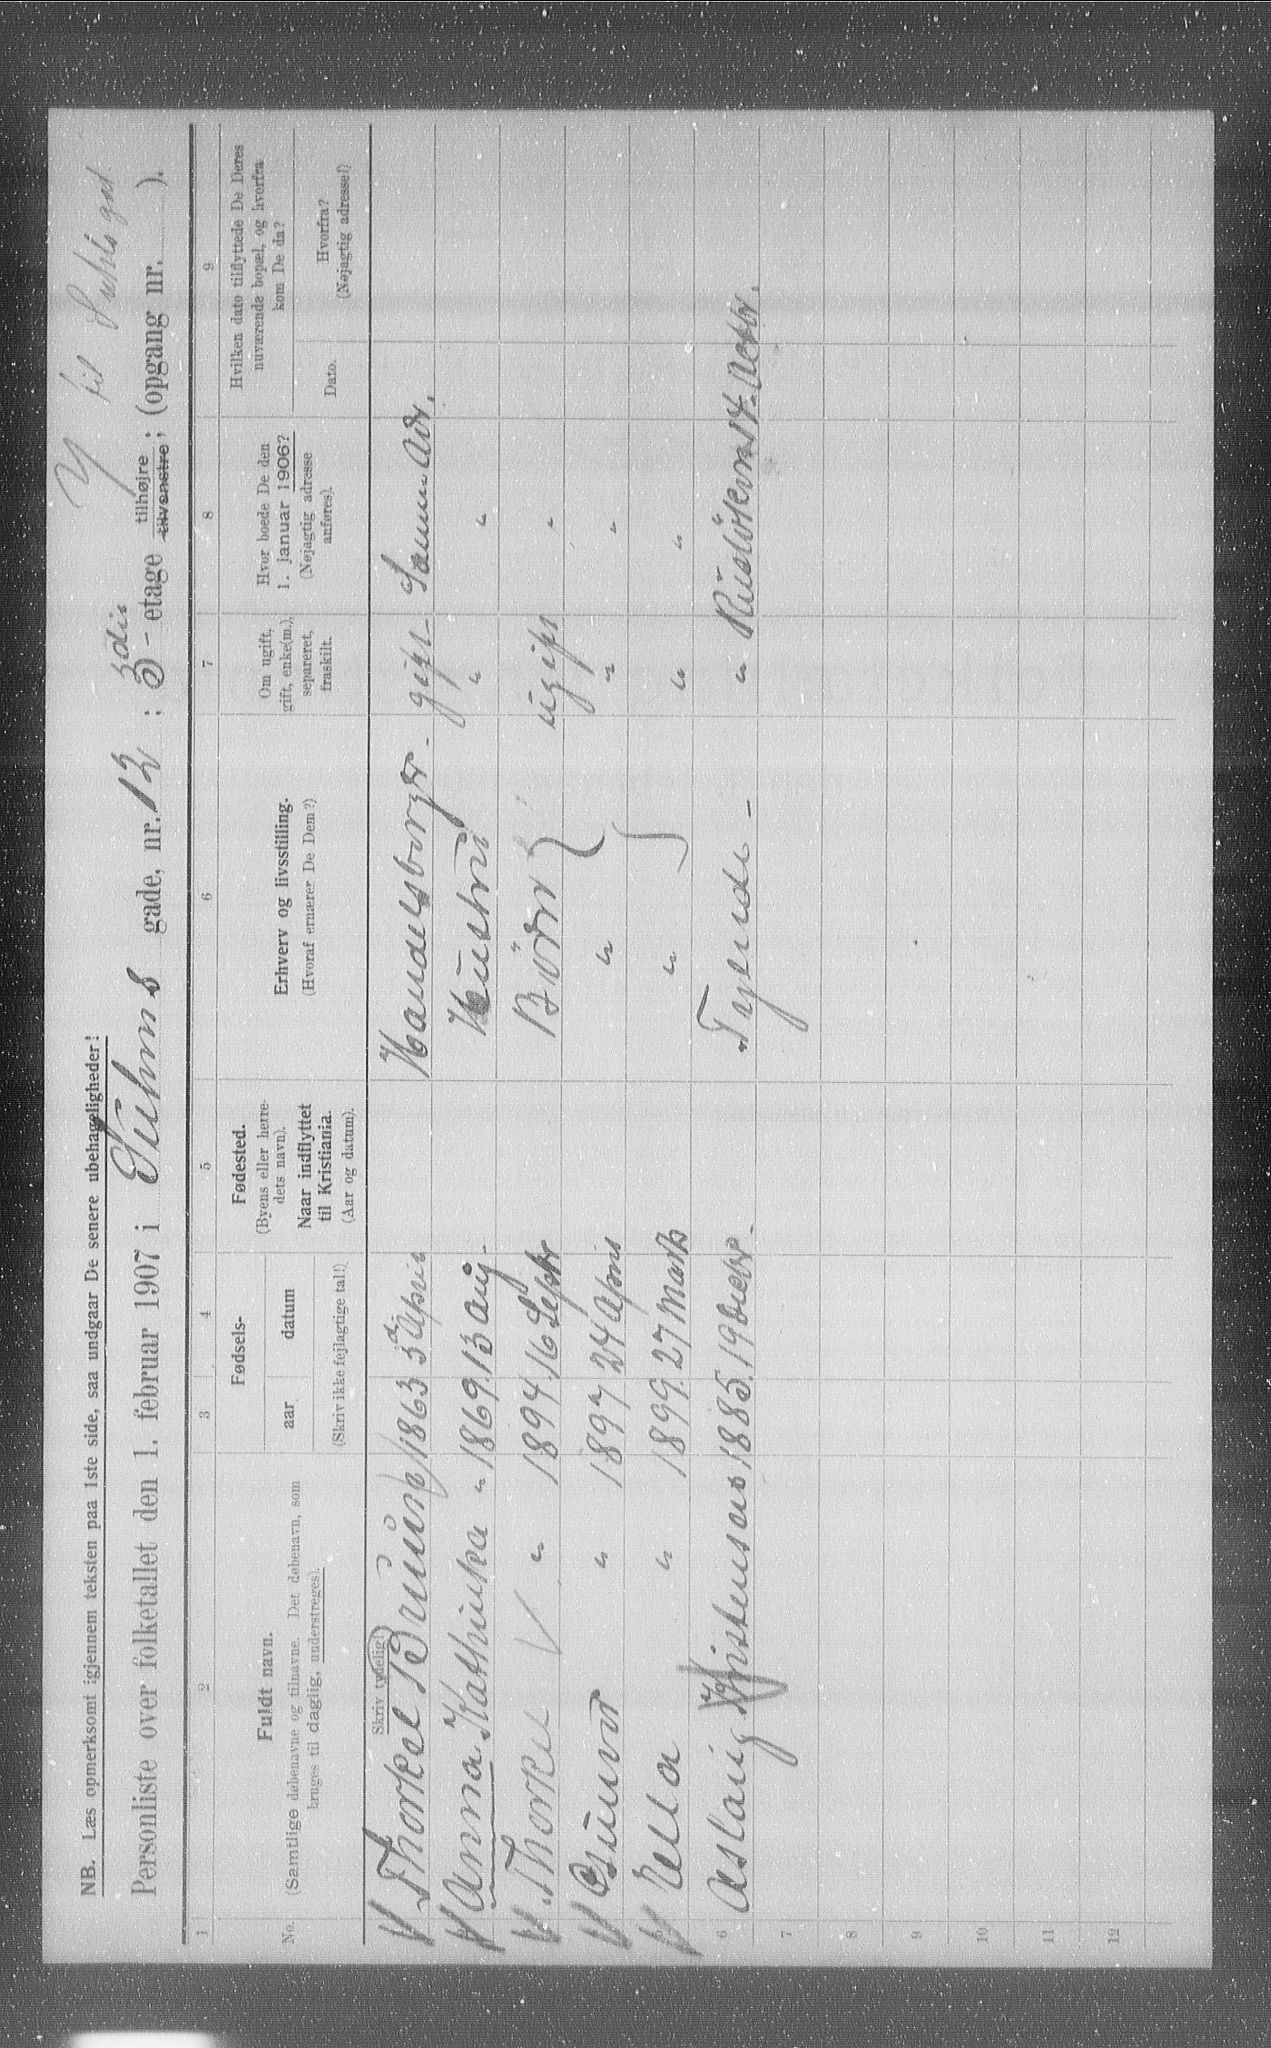 NB. Læs opmerksomt igjennem teksten paa 1ste side, saa undgaar De senere ubehageligheder!
til
Personliste over folketallet den 1. februar 1907 i Suhms gade, nr. 12 ; 3die - etage tilhøjre ; tilvenstre ; (opgang nr. ).
1 2 3 4 5 6 7 8 9
No.
Fuldt navn.
(Samtlige døbenavne og tilnavne. Det døbenavn, som
bruges til daglig, understreges).
Skriv tydelig!
Fødsels-
aar datum
(Skriv ikke fejlagtige tal!)
Fødested.
(Byens eller herre-
dets navn).
Naar indflyttet
til Kristiania.
(Aar og datum).
Erhverv og livsstilling.
(Hvoraf ernærer De Dem?)
Om ugift,
gift, enke(m.),
separeret,
fraskilt.
Hvor boede De den
1. januar 1906?
(Nøjagtig adresse
anføres).
Hvilken dato tilflyttede De Deres
nuværende bopæl, og hvorfra
kom De da?
Dato.
Hvorfra?
(Nøjagtig adresse!)
Thorkel Bruun 1863 3 April Handelsborger - gift - Samme Adr.
Anna Kathinka " 1869. 13 Aug. Hustru " "
Thorkel " 1894. 16 Septbr Børn ugift "
Gunvor " 1897 24 April " " "
Ella " 1899. 27 Marts " " "
6 Aslaug Kristensen 1885. 19 Tyende - "
7
8
9
10
11
12